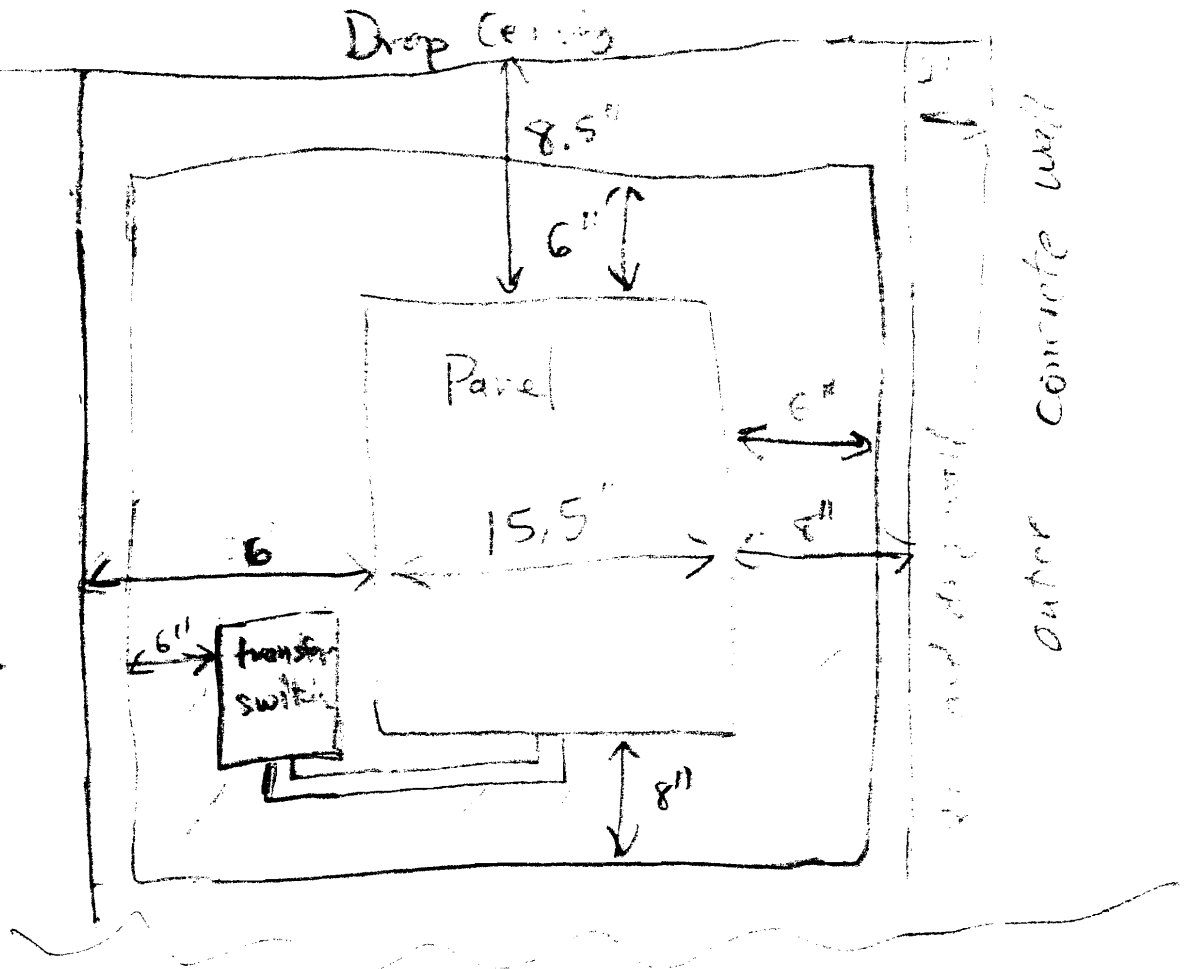 Drop Ceiling
8.5"
6"
Panel
6"
15.5"
8"
6
6"
transfer
switch
8"
outer concrete wall